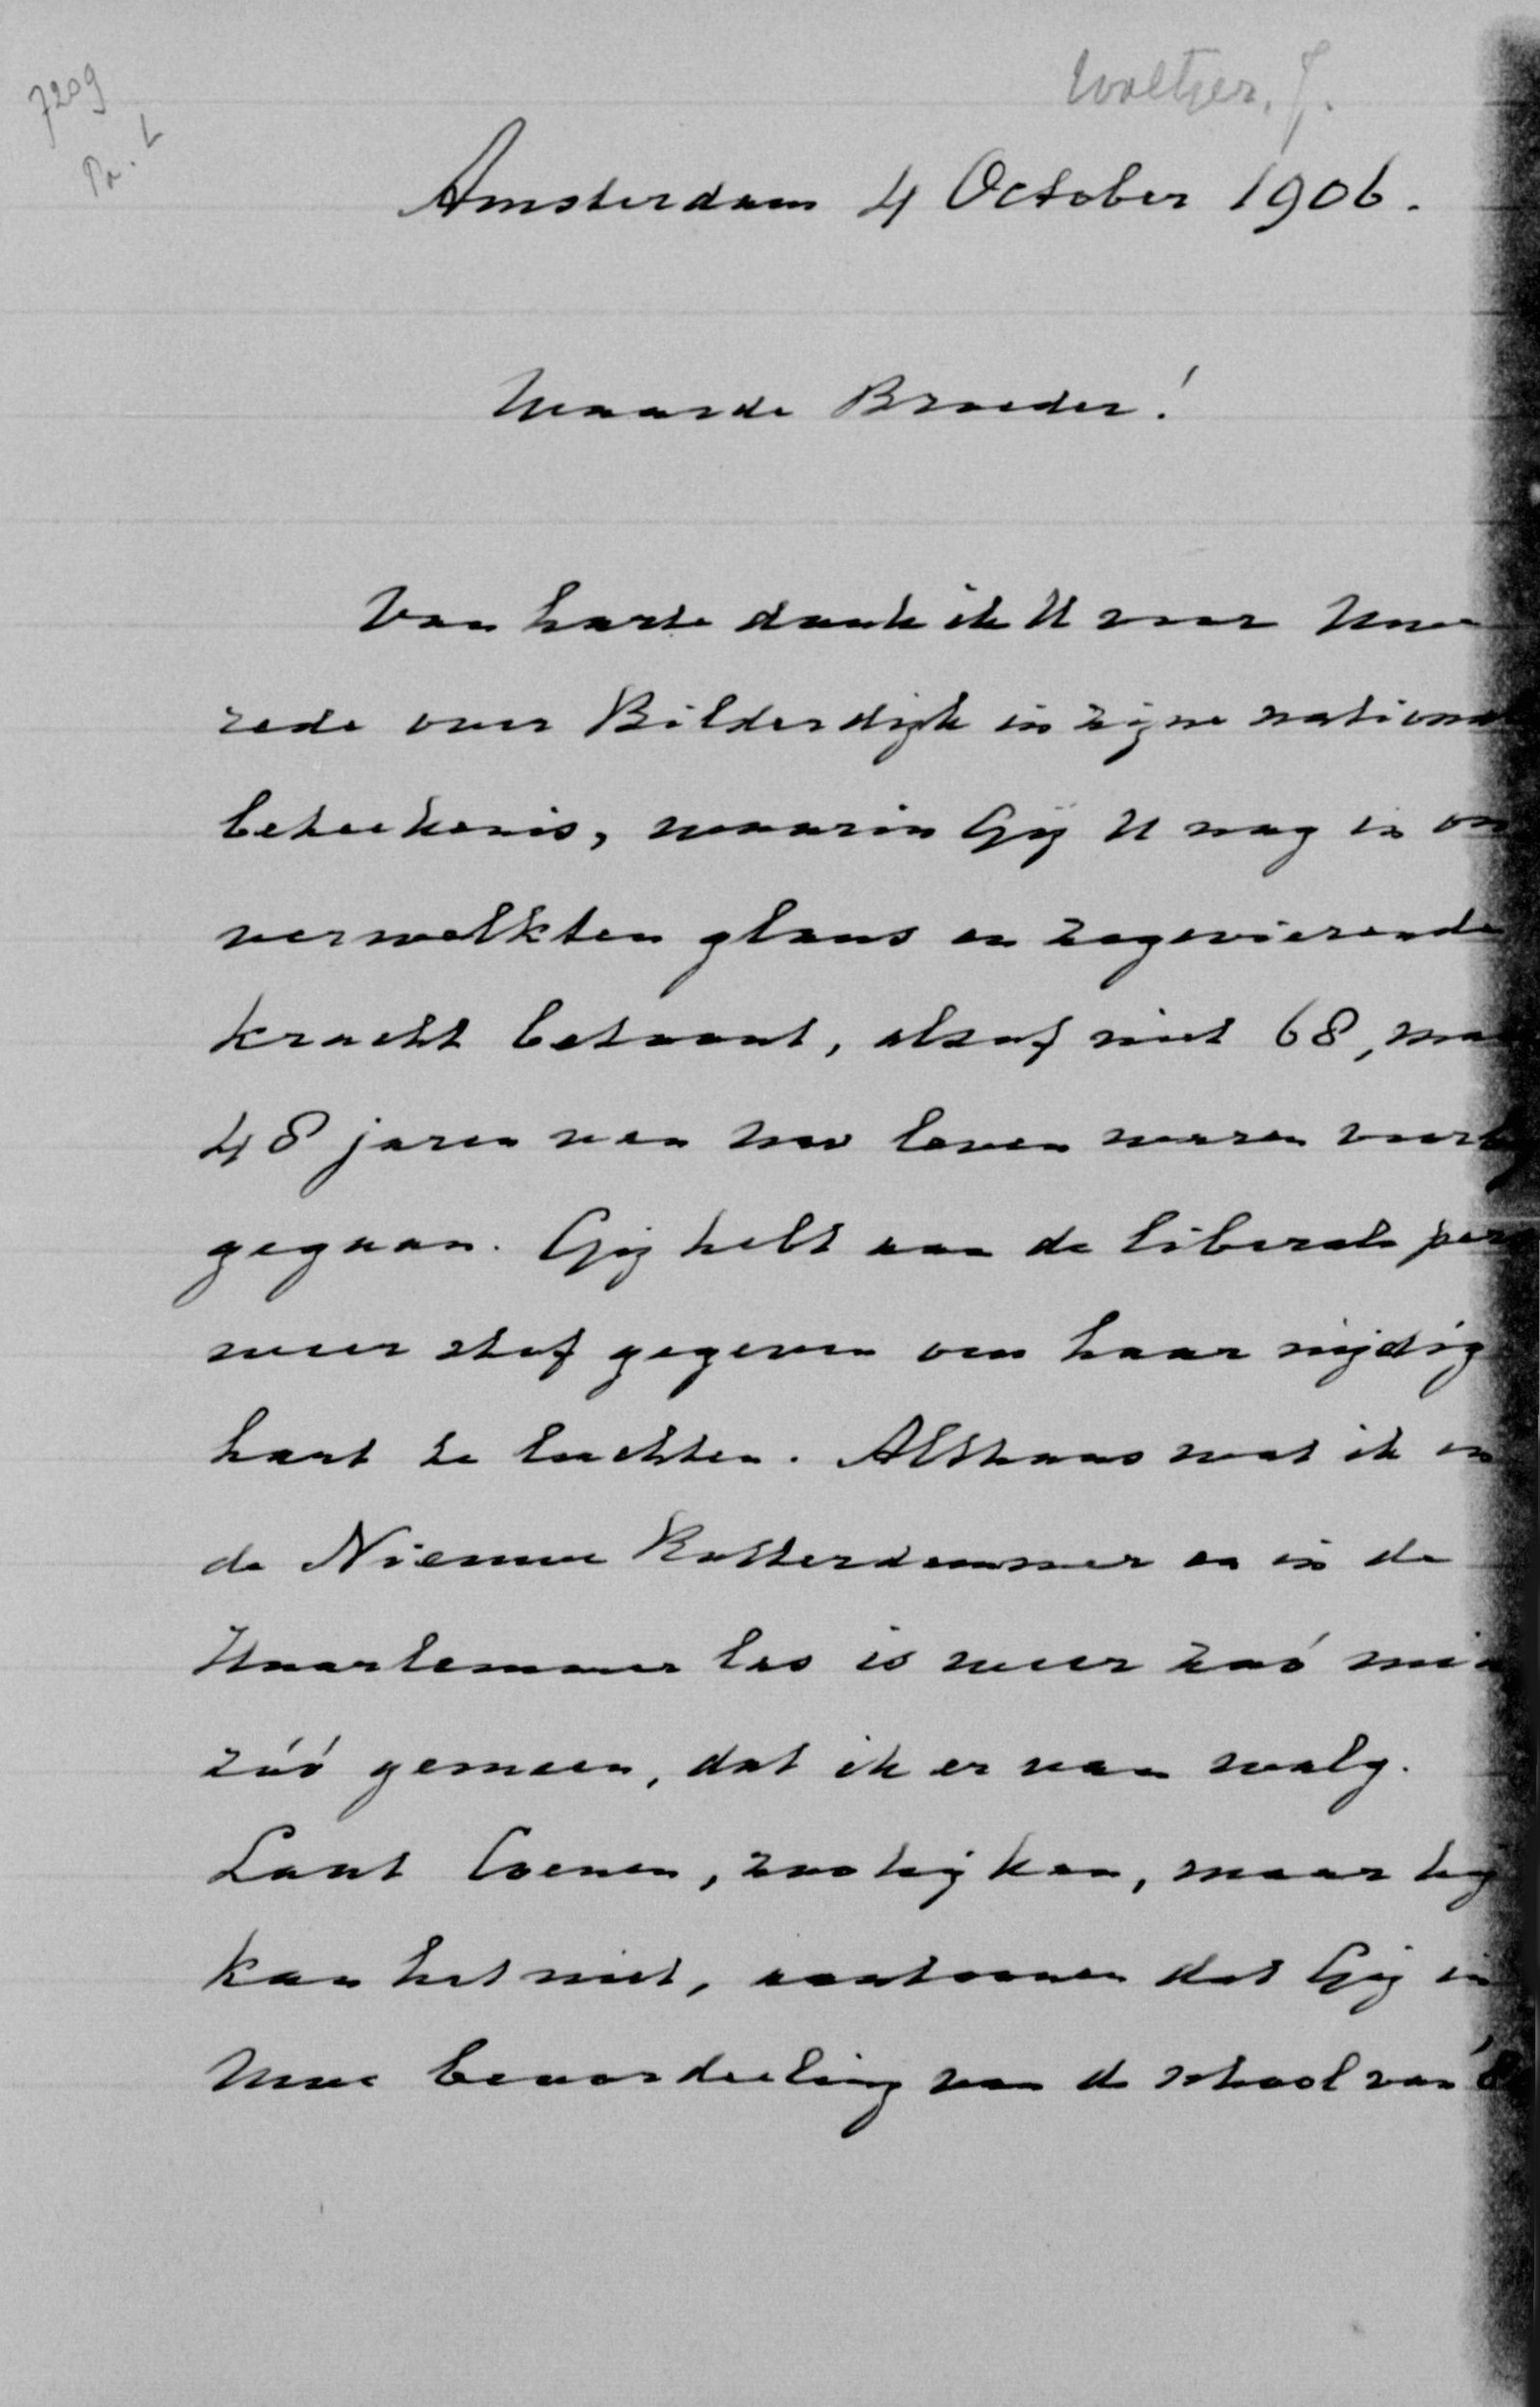 7209
Pr. L
Woltjer, J.
Amsterdam 4 October 1906.
Waarde Broeder!
Van harte dank ik U voor Uwe
rede over Bilderdijk in zijne nationa
beteekenis, waarin Gij U nog in on
verwelkten glans en zegevierende
kracht betoont, alsof niet 68, maa
48 jaren van uw leven waren voorb
gegaan. Gij hebt aan de liberale pers
weer stof gegeven om haar nijdig
hart te luchten. Althans wat ik in
de Nieuwe Rotterdammer en in de
Haarlemmer las is weer zoó min
zóó gemeen, dat ik er van walg.
Laat Coenen, zoo hij kan, maar hij
kan het niet, aantoonen dat Gij in
Uwe beoordeeling van de school van '8